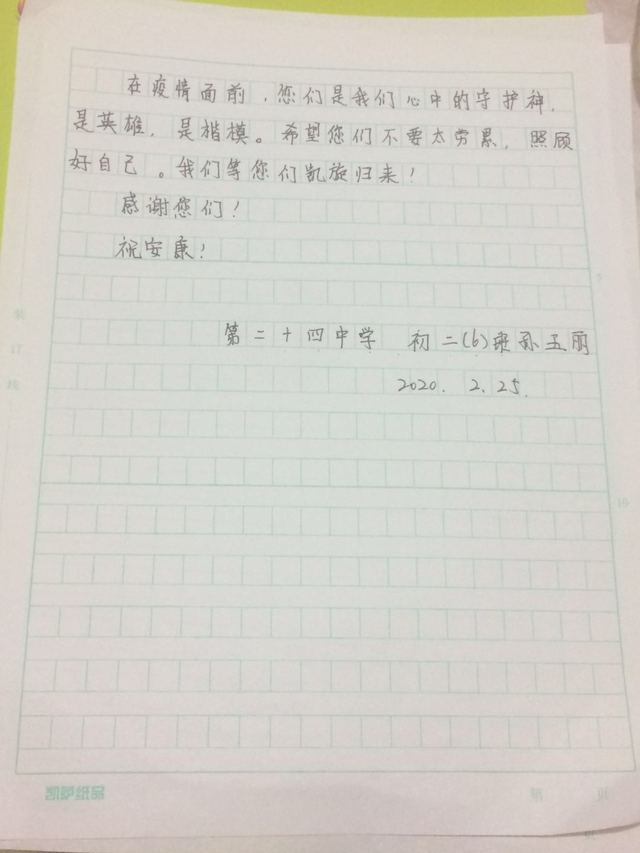 在疫情面前，您们是我们心中的守护神，
是英雄，是楷模。希望您们不要太劳累，照顾
好自己。我们等您们凯旋归来！
感谢您们！
祝安康！
第二十四中学 初二(6)班孙玉丽
2020. 2.25.
装
订
线
10
凯萨纸品
第 页